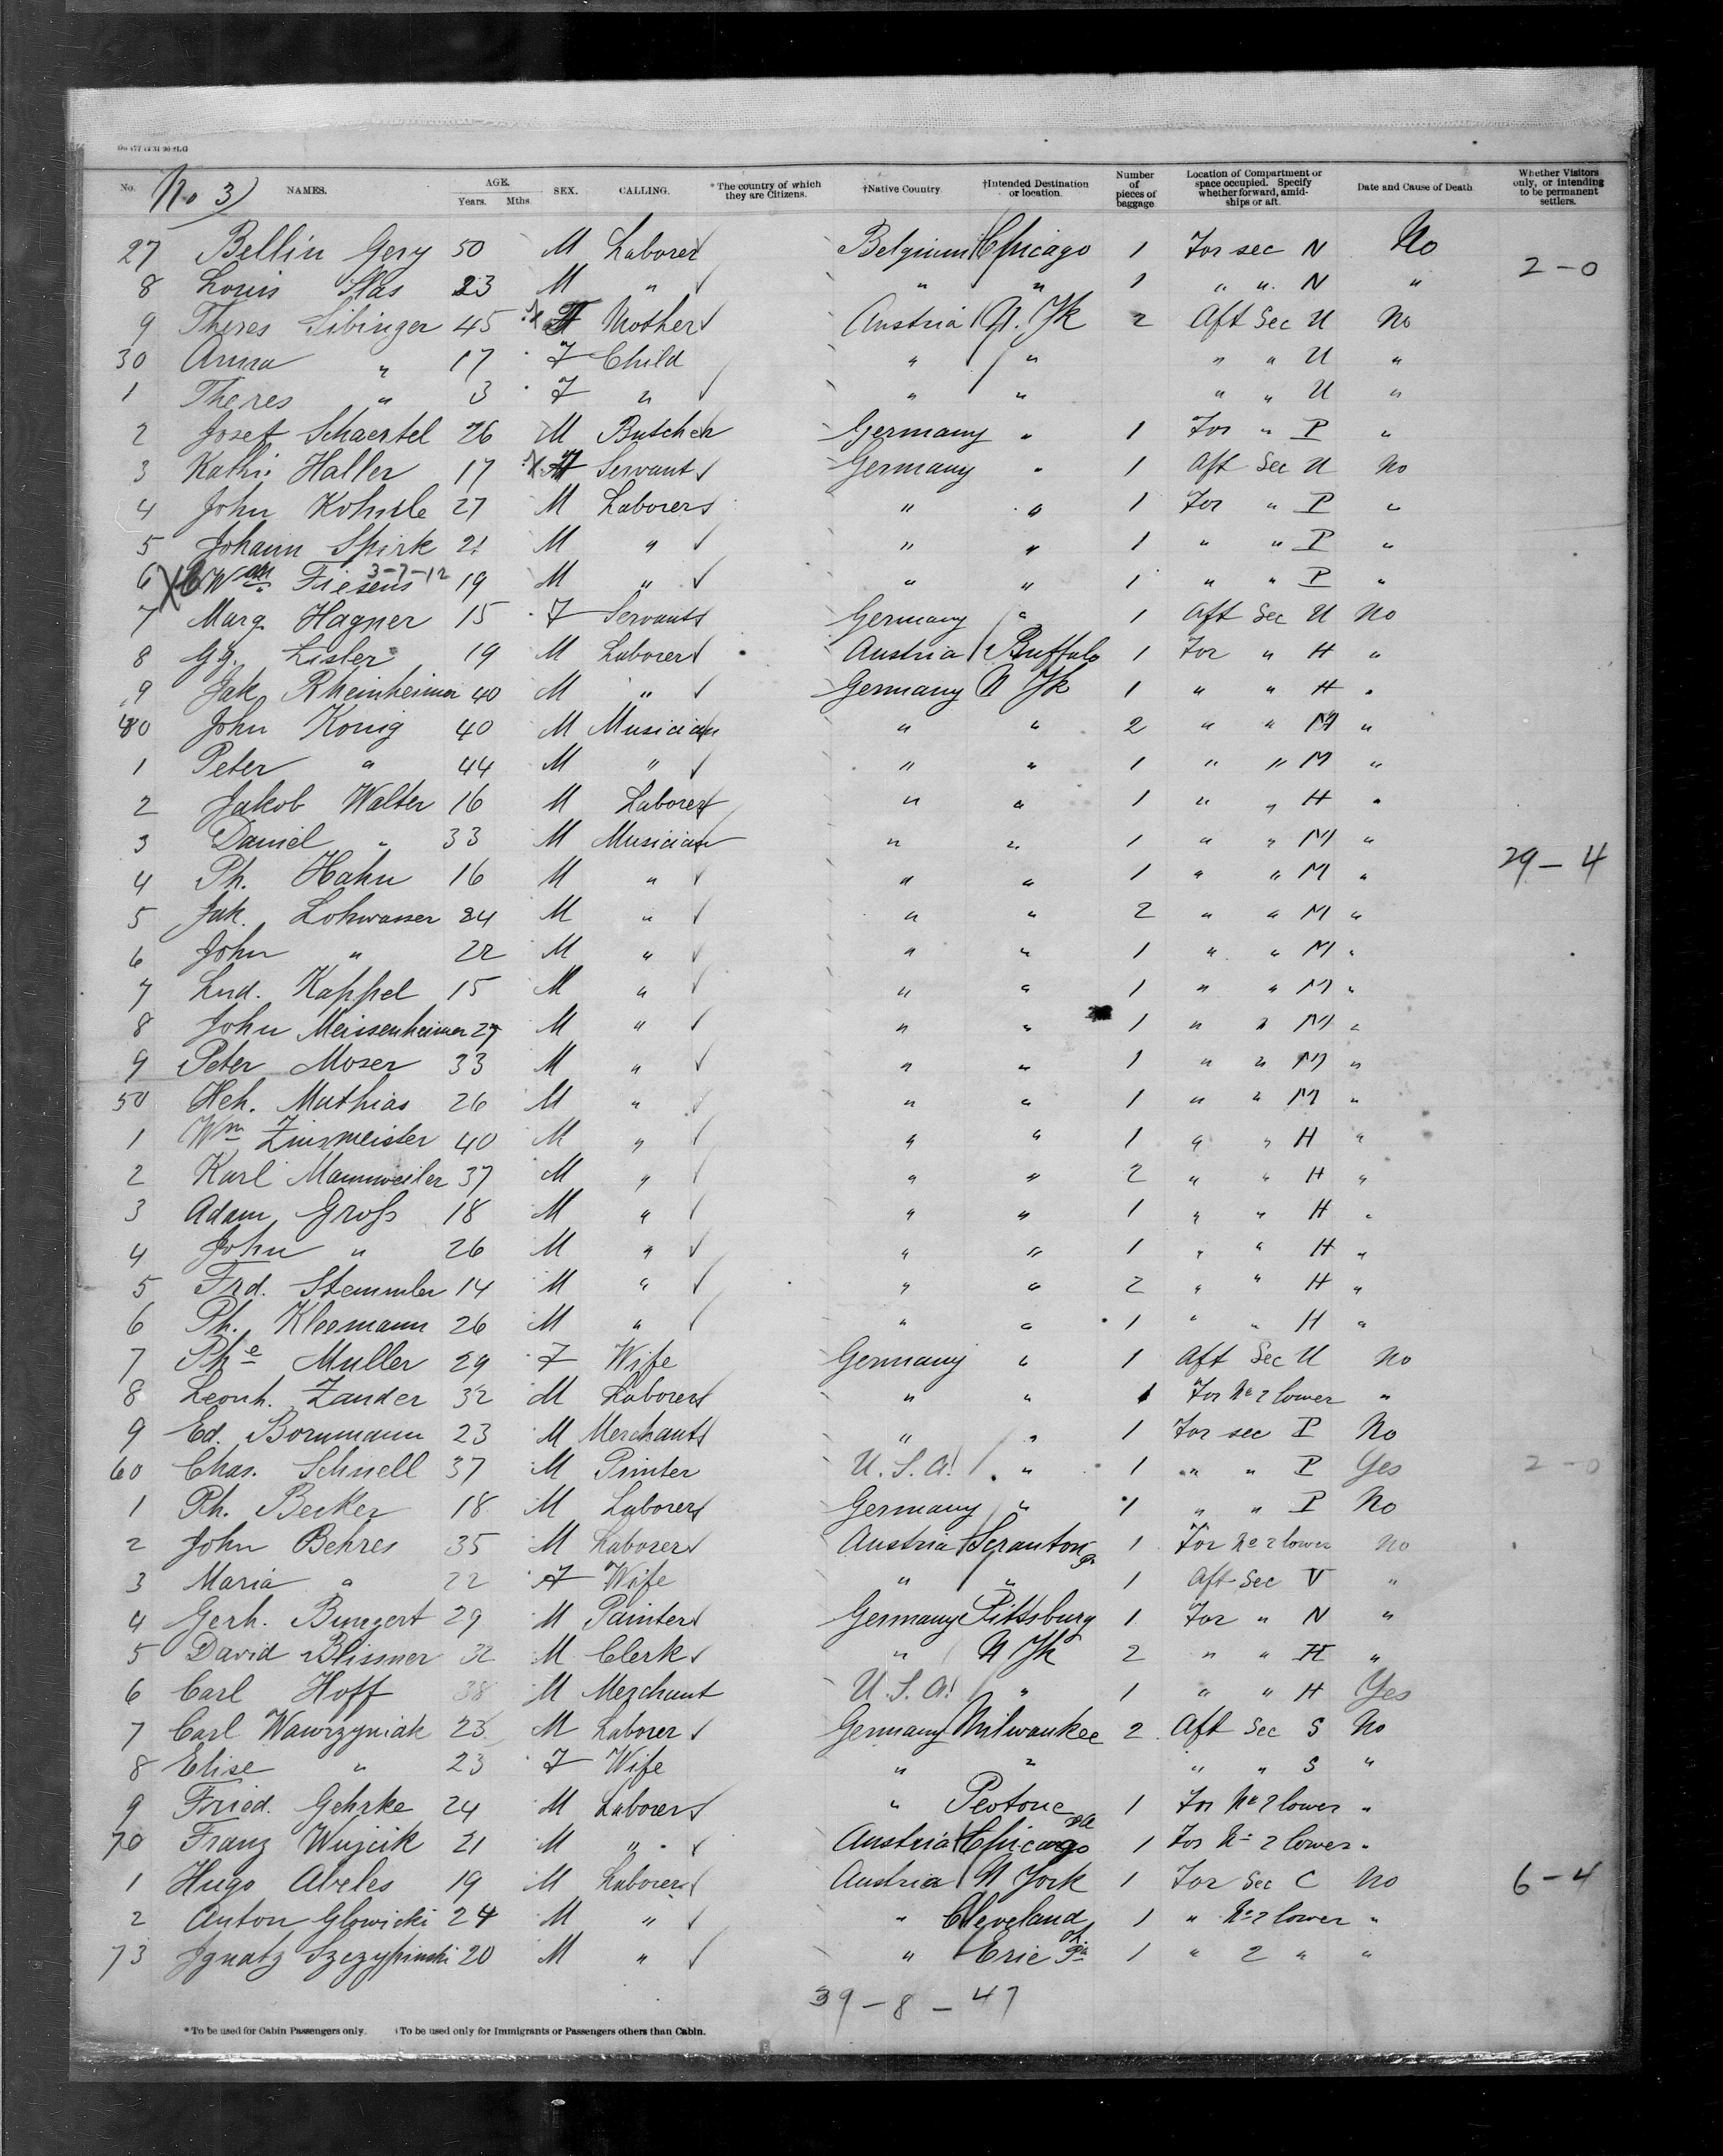 No 3)
No. NAMES. AGE. Years. Mths. SEX. CALLING. *The country of which they are Citizens. †Native Country. †Intended Destination or location. Number of pieces of baggage Location of Compartment or space occupied. Specify whether forward, amidships or aft. Date and Cause of Death Whether Visitors only, or intending to be permanent settlers.
27 Bellin Gery 50 M Laborer Belgium Chicago 1 For sec N No
2-0
8 Louis Slas 23 M " " " 1 " " N "
9 Theres Sibinger 45 F Mother Austria N. Yk 2 Aft Sec U No
30 Anna " 17 F Child " " " " U "
1 Theres " 3 F " " " " " U "
2 Josef Schaertel 26 M Butcher Germany " 1 For " P "
3 Kathi Haller 17 F Servant Germany " 1 Aft Sec U No
4 John Kohnle 27 M Laborers " " 1 For " P "
5 Johann Spirk 21 M " " " 1 " " P "
3-7-12
6 X Wm Friesens 19 M " " " 1 " " P "
7 Marg. Hagner 15 F Servants Germany " 1 Aft Sec U No
8 Gg. Lisler 19 M Laborer Austria Buffalo 1 For " H "
9 Jak. Rheinheimer 40 M " Germany N Yk 1 " " H "
40 John Konig 40 M Musician " " 2 " " M "
1 Peter " 44 M " " " 1 " " M "
2 Jakob Walter 16 M Laborer " " 1 " " H "
3 Daniel " 33 M Musician " " 1 " " M "
29-4
4 Ph. Hahn 16 M " " " 1 " " M "
5 Jak. Lohwasser 24 M " " " 2 " " M "
6 John " 22 M " " " 1 " " M "
7 Lud. Kappel 15 M " " " 1 " " M "
8 John Meissenheimer 27 M " " " 1 " " M "
9 Peter Moser 33 M " " " 1 " " M "
50 Hch. Mathias 26 M " " " 1 " " M "
1 Wm Zinsmeister 40 M " " " 1 " " H "
2 Karl Mannweiler 37 M " " " 2 " " H "
3 Adam Groß 18 M " " " 1 " " H "
4 John " 26 M " " " 1 " " H "
5 Frd. Stemmler 14 M " " " 2 " " H "
6 Ph. Kleemann 26 M " " " 1 " " H "
7 Phe Muller 29 F Wife Germany " 1 Aft Sec U No
8 Leonh. Zander 32 M Laborer " " 1 For No 2 lower "
9 Ed. Bornmann 23 M Merchant " " 1 For sec P No
60 Chas. Schnell 37 M Printer U.S.A! " 1 " " P Yes
2-0
1 Ph. Becker 18 M Laborer Germany " 1 " " P No
2 John Behres 35 M Laborer Austria Scranton Pa 1 For No 2 lower No
3 Maria " 22 F Wife " " 1 Aft Sec V "
4 Gerh. Bungert 29 M Painter Germany Pittsburg 1 For " N "
5 David Blismer 32 M Clerk " N Yk 2 " " H "
6 Carl Hoff 38 M Merchant U.S.A! " 1 " " H Yes
7 Carl Wawrzyniak 23 M Laborer Germany Milwaukee 2 Aft Sec S No
8 Elise " 23 F Wife " " " " S "
9 Fried. Gehrke 24 M Laborer " Peotone 1 For No 2 lower "
70 Franz Wujcik 21 M " Austria Chicago 1 For No 2 lower "
1 Hugo Abeles 19 M Laborer Austria N York 1 For Sec C No
6-4
2 Anton Glowicki 24 M " " Cleveland 1 " No 2 lower "
73 Ignatz Szczypinski 20 M " " Erie Pa 1 " 2 " "
39-8-47
*To be used for Cabin Passengers only. †To be used only for Immigrants or Passengers others than Cabin.